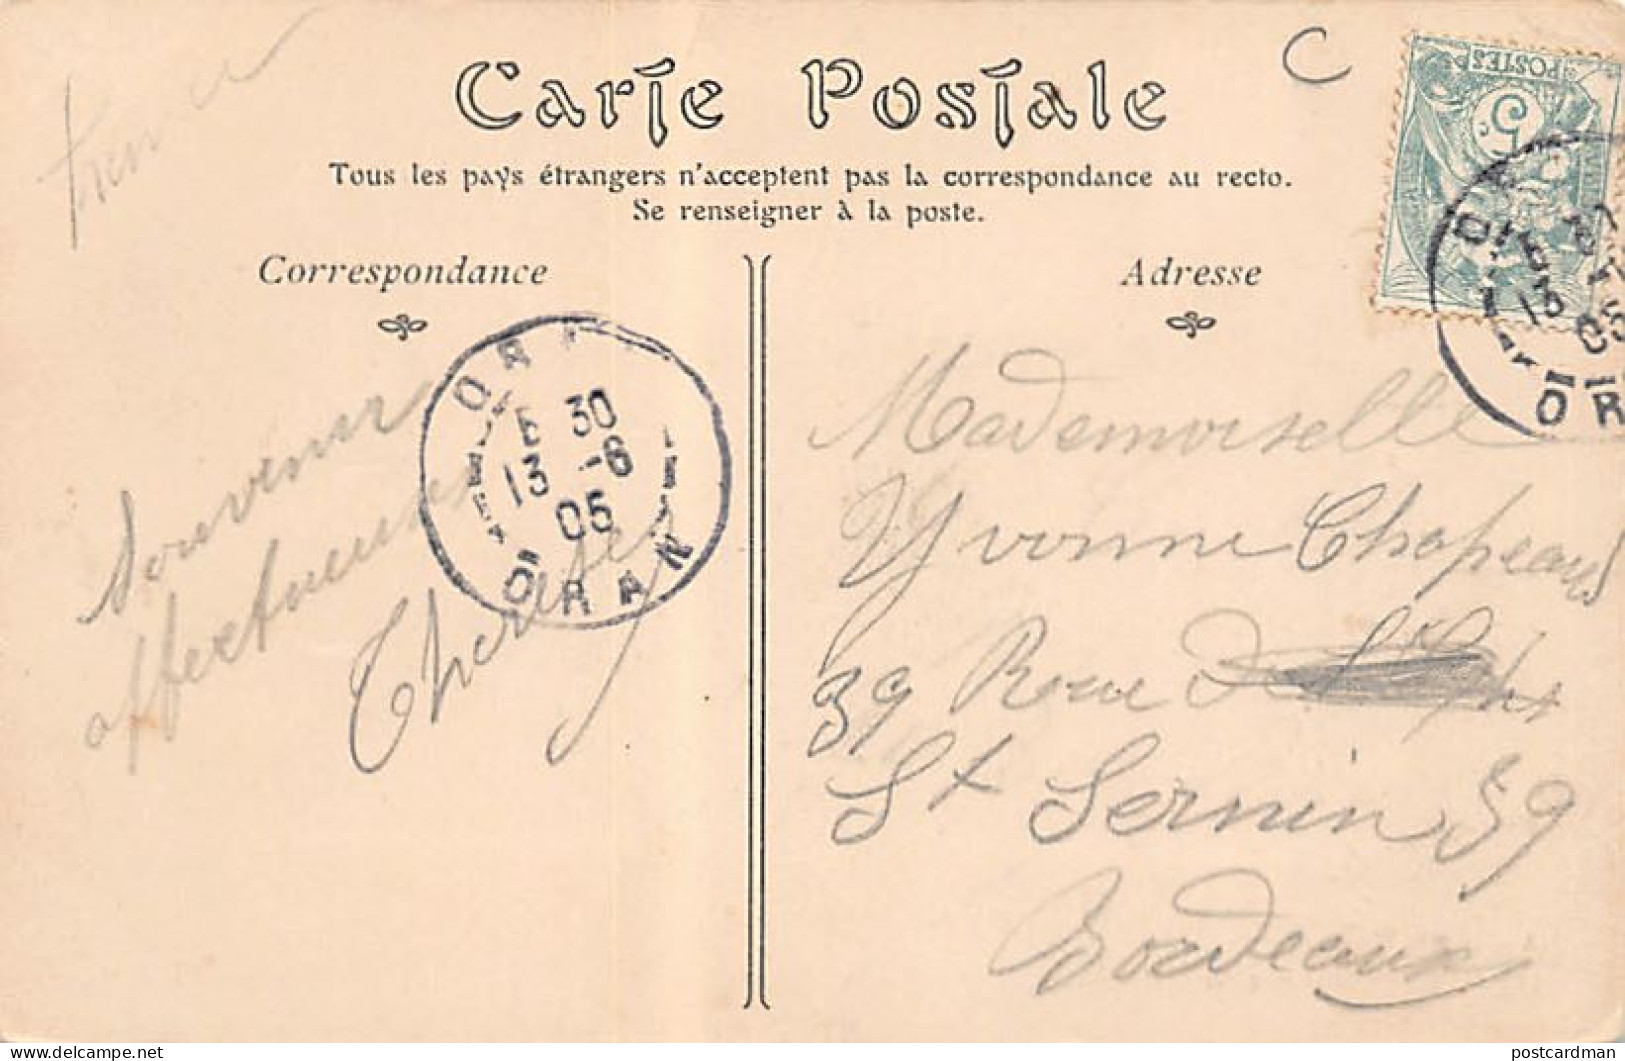 C
Carte Postale
Tous les pays étrangers n'acceptent pas la correspondance au recto.
Se renseigner à la poste.
POSTES
5c
ORAN
13
05
OR
Correspondance
Adresse
ORAN
E 30
13 -6
05
ORAN
Souvenir
affectueux
Therese
Mademoiselle
Yvonne Chapeaus
39 Rue
St Sernin 59
Bordeaux
postcardman
www.delcampe.net